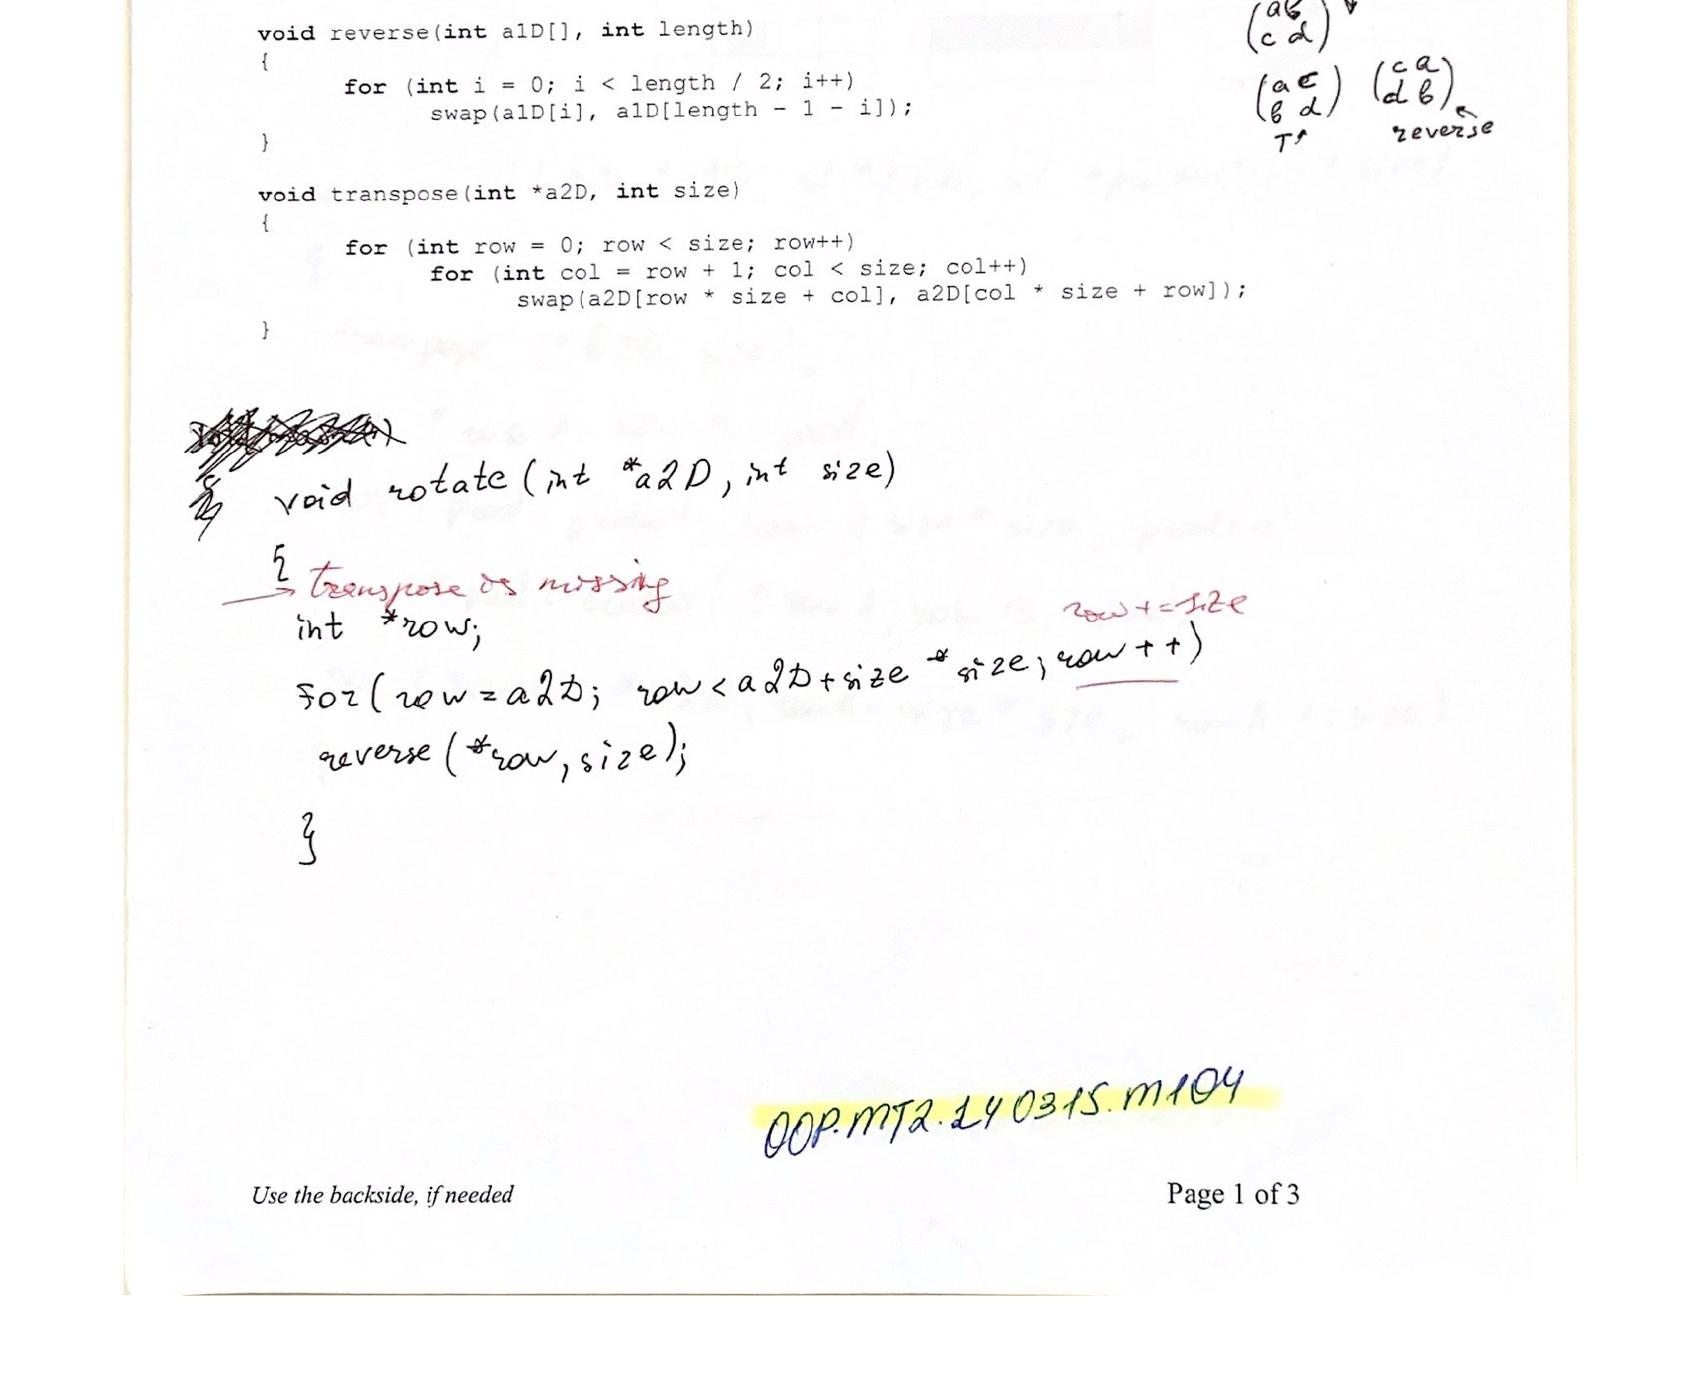 void reverse(int a1D[], int length)
{
for (int i = 0; i < length / 2; i++)
swap(a1D[i], a1D[length - 1 - i]);
}
(a b
c d)
(a c
b d)
T
(c a
d b)
reverse
void transpose(int *a2D, int size)
{
for (int row = 0; row < size; row++)
for (int col = row + 1; col < size; col++)
swap(a2D[row * size + col], a2D[col * size + row]);
}
void rotate (int *a2D, int size)
{
transpose is missing
int *row;
row += size
for( row = a2D; row < a2D + size * size; row ++)
reverse (*row, size);
}
OOP.MT2.140315.M104
Use the backside, if needed
Page 1 of 3